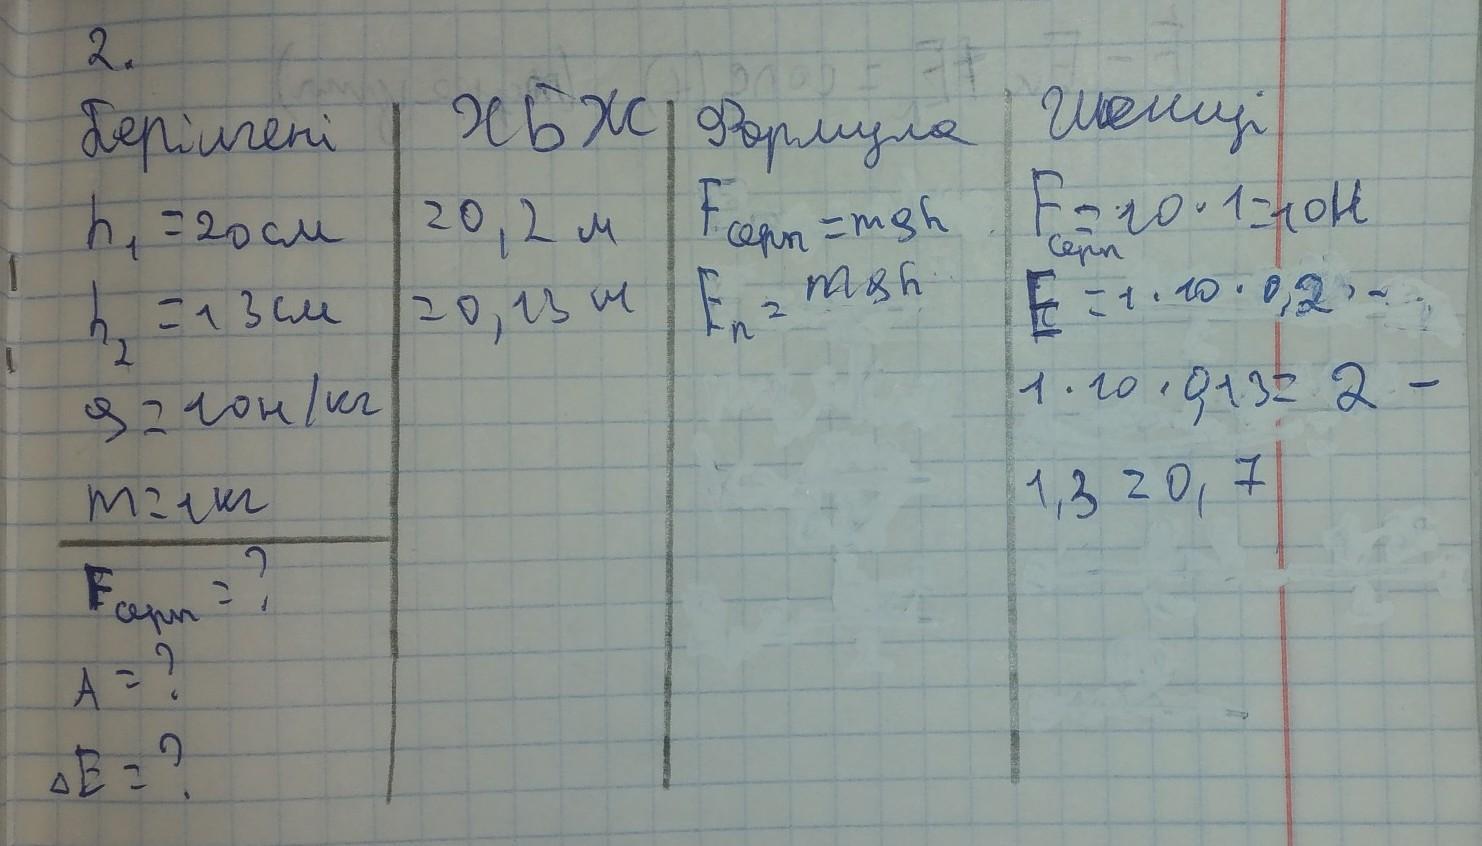 2.
Берілгені ХБЖ Формула Шешуі
h₁ =20см =0,2 м Fсерп =mgh Fсерп =10·1=10Н
h₂ =13см =0,13 м Eп = mgh E =1·10·0,2 -
g=10н/кг 1·10·0,13= 2 -
m=1кг 1,3 =0,7
Fсерп =?
A =?
△E =?